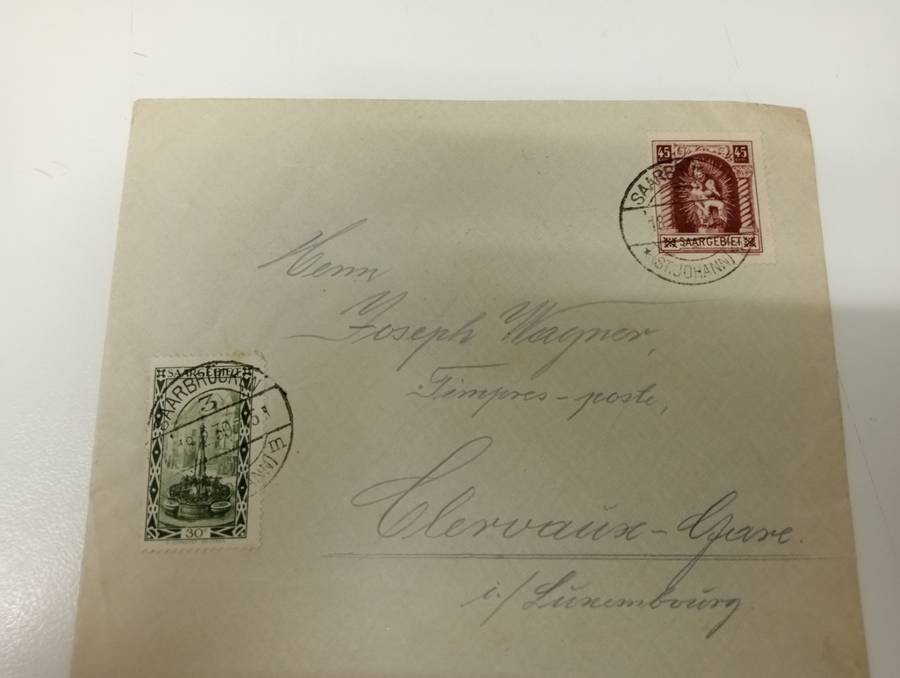 45 45
SAARGEBIET
SAARB
(ST. JOHANN)
Herrn
Joseph Wagner,
Timpres-poste,
Clervaux-Gare.
i./Luxembourg.
SAARGEBIET
30
SAARBRÜCKEN
3
m